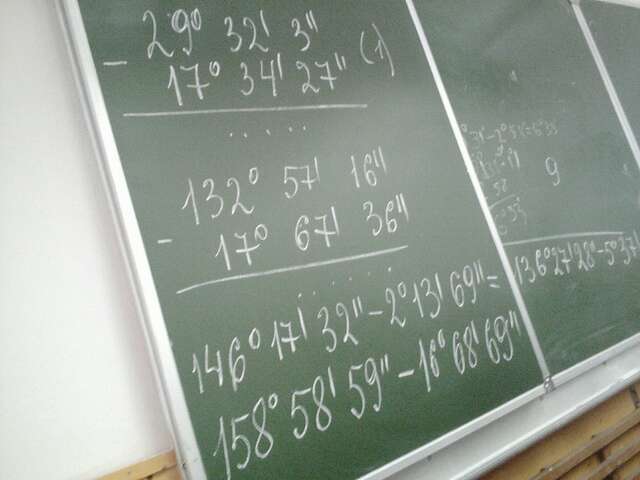 29° 32' 3"
- (1)
17° 34' 27"
.....
132° 57' 16"
-
17° 67' 36"
......
146° 17' 32" - 2° 13' 69" =
158° 58' 59" - 16° 68' 69"
9
136° 27' 28" - 5° 37'